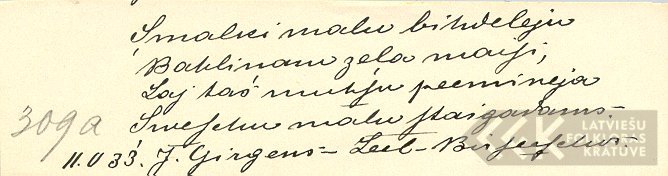 Smalki malu bihdeleju
Bahlinam zela maisi,
Laj tas mutsu peemineja
Sweschu malu staigadams.
309a
11.V 33. J. Girgens - Leel-
LATVIEŠU
FOLKLORAS
KRĀTUVE